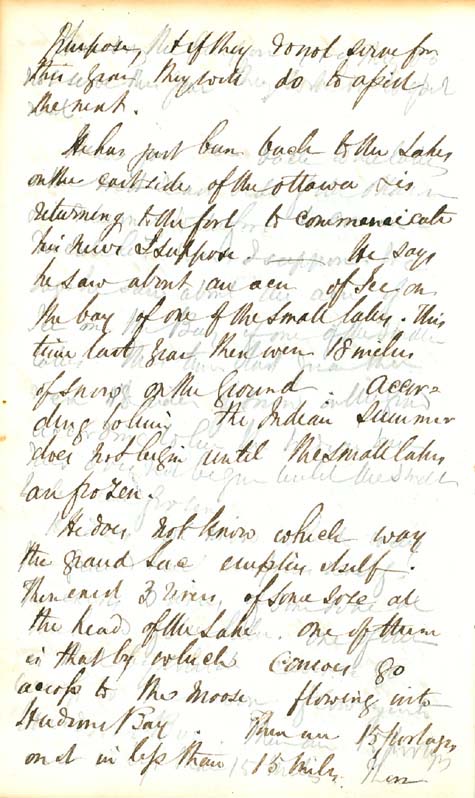 Purpose, & if they do not serve for
this year they will do to assist
the next.
He has just been back to the Lakes
on the east side of the Ottawa & is
returning to the fort to communicate
his news I suppose He says
he saw about an acre of Ice on
the bay of one of the small lakes. This
time last year there were 18 inches
of snow on the ground. Accor=
ding to him the Indian Summer
does not begin until the small lakes
are frozen.
He does not know which way
the grand Lac empties itself.
There enest 3 rivers of some size at
the head of the Lake. one of them
is that by which canoes go
across to the Moose flowing into
Hudsons Bay. There are 15 portages
on it in less than 15 miles. There